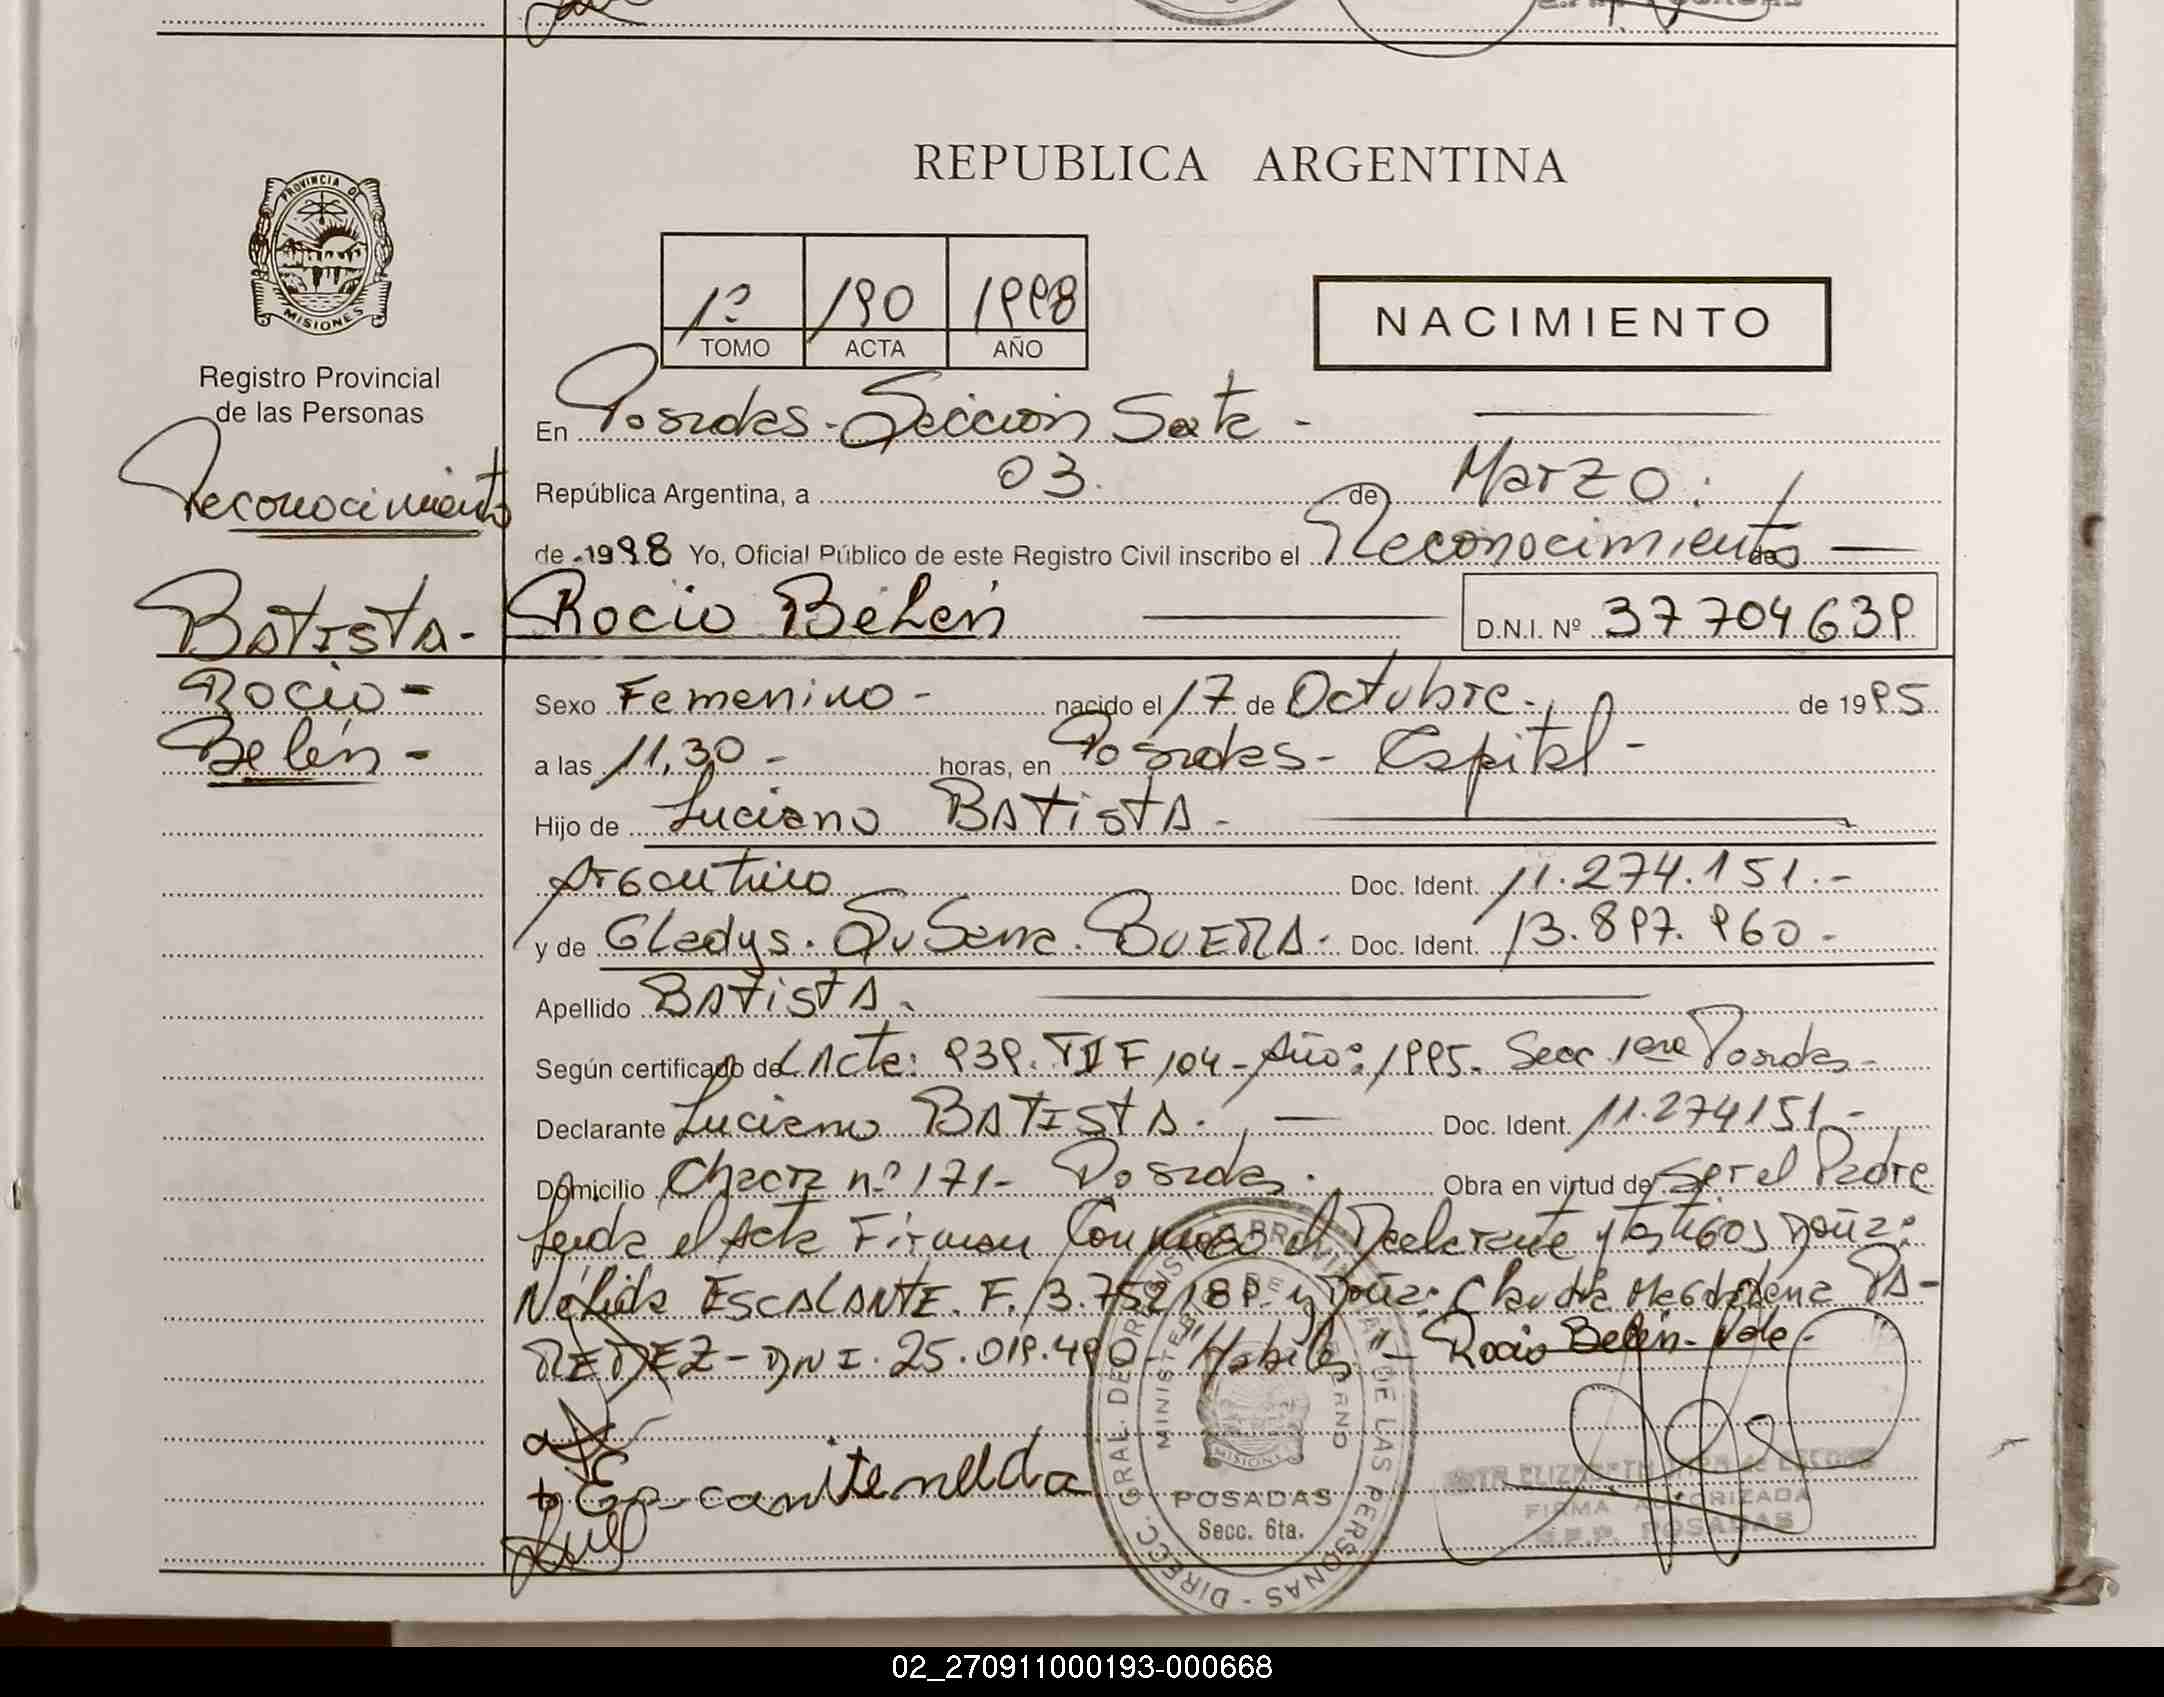 REPUBLICA ARGENTINA
PROVINCIA DE
MISIONES
Registro Provincial
de las Personas
1º 190 1998
TOMO ACTA AÑO
NACIMIENTO
Reconocimiento
Batista-
Rocio-
Belén-
En Posadas-Sección Sexta-
República Argentina, a 03. de Marzo.
de 1998 Yo, Oficial Público de este Registro Civil inscribo el Reconocimiento de
Rocio Belén D.N.I. Nº 37704639
Sexo Femenino- nacido el 17 de Octubre. de 1995
a las 11,30- horas, en Posadas- Capital-
Hijo de Luciano Batista-
Argentino Doc. Ident. 11.274.151.-
y de Gladys. Susana. Buera. Doc. Ident. 13.897.960-
Apellido Batista.
Según certificado de Acta: 939. TII F 104-Año: 1995. Secc 1era Posadas-
Declarante Luciano Batista. Doc. Ident. 11.274151-
Domicilio Chacra nº 171- Posadas. Obra en virtud de ser el Padre
Leida el Acta Firman Conmigo el Declarante y testigos Doña:
Nélida ESCALANTE. F. 3.752189. y Doña: Claudia Magdalena PA-
REDEZ-DNI. 25.019.490- "Habiles"- Rocio Belén- Vale-
Escalante nelida
DIRECC. GRAL. DE REGISTRO PROVINCIAL DE LAS PERSONAS
MINISTERIO DE GOBIERNO
MISIONES
POSADAS
Secc. 6ta.
FIRMA AUTORIZADA
POSADAS
02_270911000193-000668